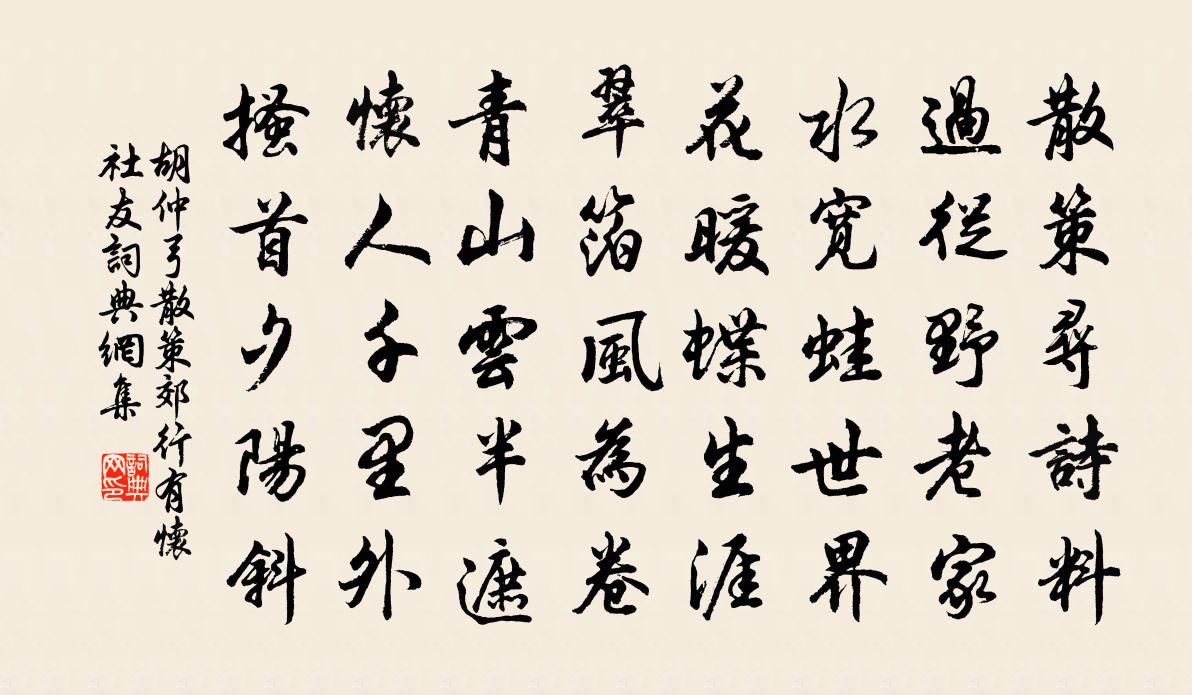 散策尋詩料
過從野老家
水寬蛙世界
花暖蝶生涯
翠箔風為卷
青山雲半遮
懷人千里外
搔首夕陽斜
胡仲弓散策郊行有懷
社友詞典網集
詞典網印